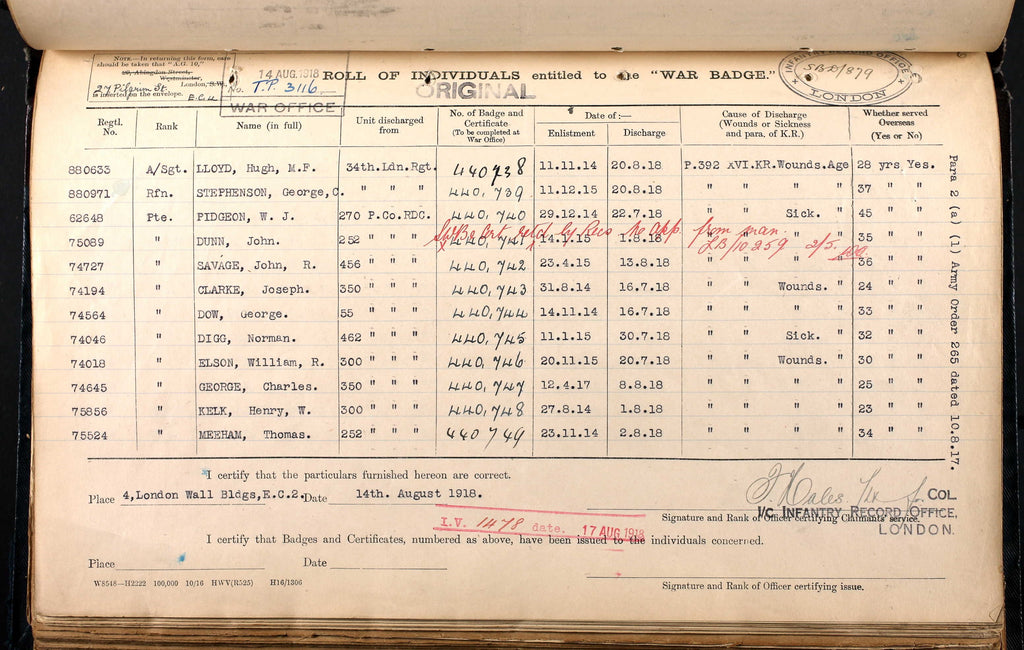 NOTE.—In returning this form, care
should be taken that "A.G. 10,"
29, Abingdon Street,
Westminster,
London, S.W.
27 Pilgrim St.
is inserted on the envelope. E.C.4
14 AUG. 1918
No. T.P. 3116
WAR OFFICE
ROLL OF INDIVIDUALS entitled to the "WAR BADGE."
ORIGINAL
INFANTRY RECORD OFFICE
SBD/879
LONDON
Regtl. No. Rank Name (in full) Unit discharged from No. of Badge and Certificate (To be completed at War Office) Date of :— Enlistment Discharge Cause of Discharge (Wounds or Sickness and para. of K.R.) Whether served Overseas (Yes or No)
880633 A/Sgt. LLOYD, Hugh, M.F. 34th.Ldn.Rgt. 440738 11.11.14 20.8.18 P.392 XVI.KR.Wounds.Age 28 yrs Yes.
880971 Rfn. STEPHENSON, George,C. " " " 440,739 11.12.15 20.8.18 " " " " 37 " "
62648 Pte. PIDGEON, W. J. 270 P.Co.RDC. 440,740 29.12.14 22.7.18 " " Sick. " 45 " "
from man.
75089 " DUNN, John. 252 " " " 440,741 14.1.15 1.8.18 " " " " 35 " "
LB/10259 2/5.
74727 " SAVAGE, John, R. 456 " " " 440,742 23.4.15 13.8.18 " " " " 36 " "
74194 " CLARKE, Joseph. 350 " " " 440,743 31.8.14 16.7.18 " " Wounds. " 24 " "
74564 " DOW, George. 55 " " " 440,744 14.11.14 16.7.18 " " " " 33 " "
74046 " DIGG, Norman. 462 " " " 440,745 11.1.15 30.7.18 " " Sick. " 32 " "
74018 " ELSON, William, R. 300 " " " 440,746 20.11.15 20.7.18 " " Wounds. " 30 " "
74645 " GEORGE, Charles. 350 " " " 440,747 12.4.17 8.8.18 " " " " 25 " "
75856 " KELK, Henry, W. 300 " " " 440,748 27.8.14 1.8.18 " " " " 23 " "
75524 " MEEHAM, Thomas. 252 " " " 440749 23.11.14 2.8.18 " " " " 34 " "
Para 2 (a) (1) Army Order 265 dated 10.8.17.
I certify that the particulars furnished hereon are correct.
Place 4,London Wall Bldgs,E.C.2. Date 14th. August 1918.
COL.
I/C INFANTRY RECORD OFFICE,
Signature and Rank of Officer certifying Claimants' service.
LONDON.
I.V. 1478 date. 17 AUG 1918
I certify that Badges and Certificates, numbered as above, have been issued to the individuals concerned.
Place Date
W8548—H2222 100,000 10/16 HWV(R525) H16/1306
Signature and Rank of Officer certifying issue.